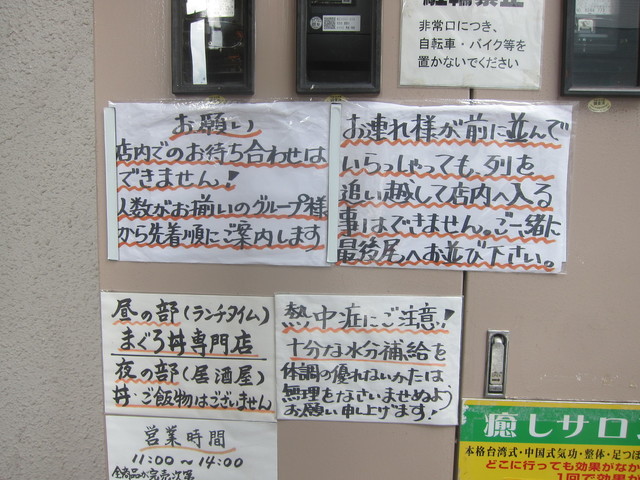 非常口につき、
自転車・バイク等を
置かないでください
お願い
店内でのお待ち合わせは
できません!
人数がお揃いのグループ様
から先着順にご案内します
お連れ様が前に並んで
いらっしゃっても、列を
追い越して店内へ入る
事はできません。ご一緒に
最後尾へお並び下さい。
昼の部(ランチタイム)
まぐろ丼専門店
夜の部(居酒屋)
丼・ご飯物はございません
熱中症にご注意!
十分な水分補給を
体調の優れないかたは
無理をなさいませぬよう
お願い申し上げます!
営業時間
11:00〜14:00
全商品が完売次第
癒しサロン
本格台湾式・中国式気功・整体・足つぼ
どこに行っても効果がな
1回で効果が